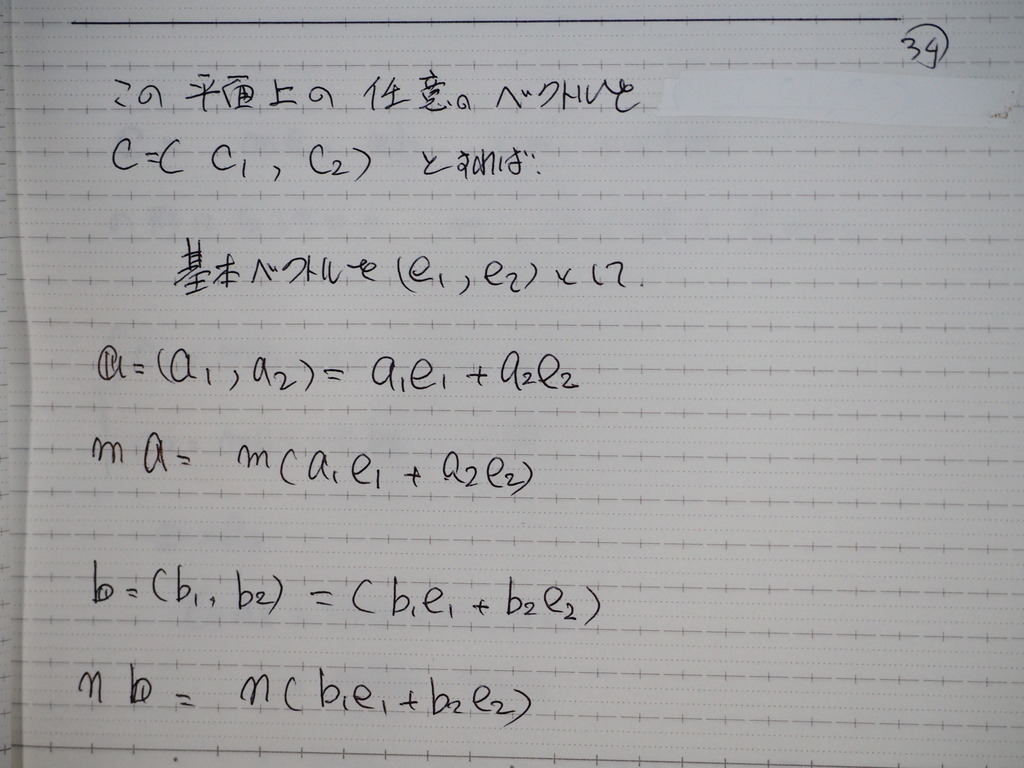 34
この平面上の任意のベクトルを
C=( C1 , C2) とすれば.
基本ベクトルを (e1 , e2) として.
a=(a1 , a2) = a1e1 + a2e2
m a = m(a1e1 + a2e2)
b = (b1, b2) = (b1e1 + b2e2)
n b = n(b1e1+b2e2)